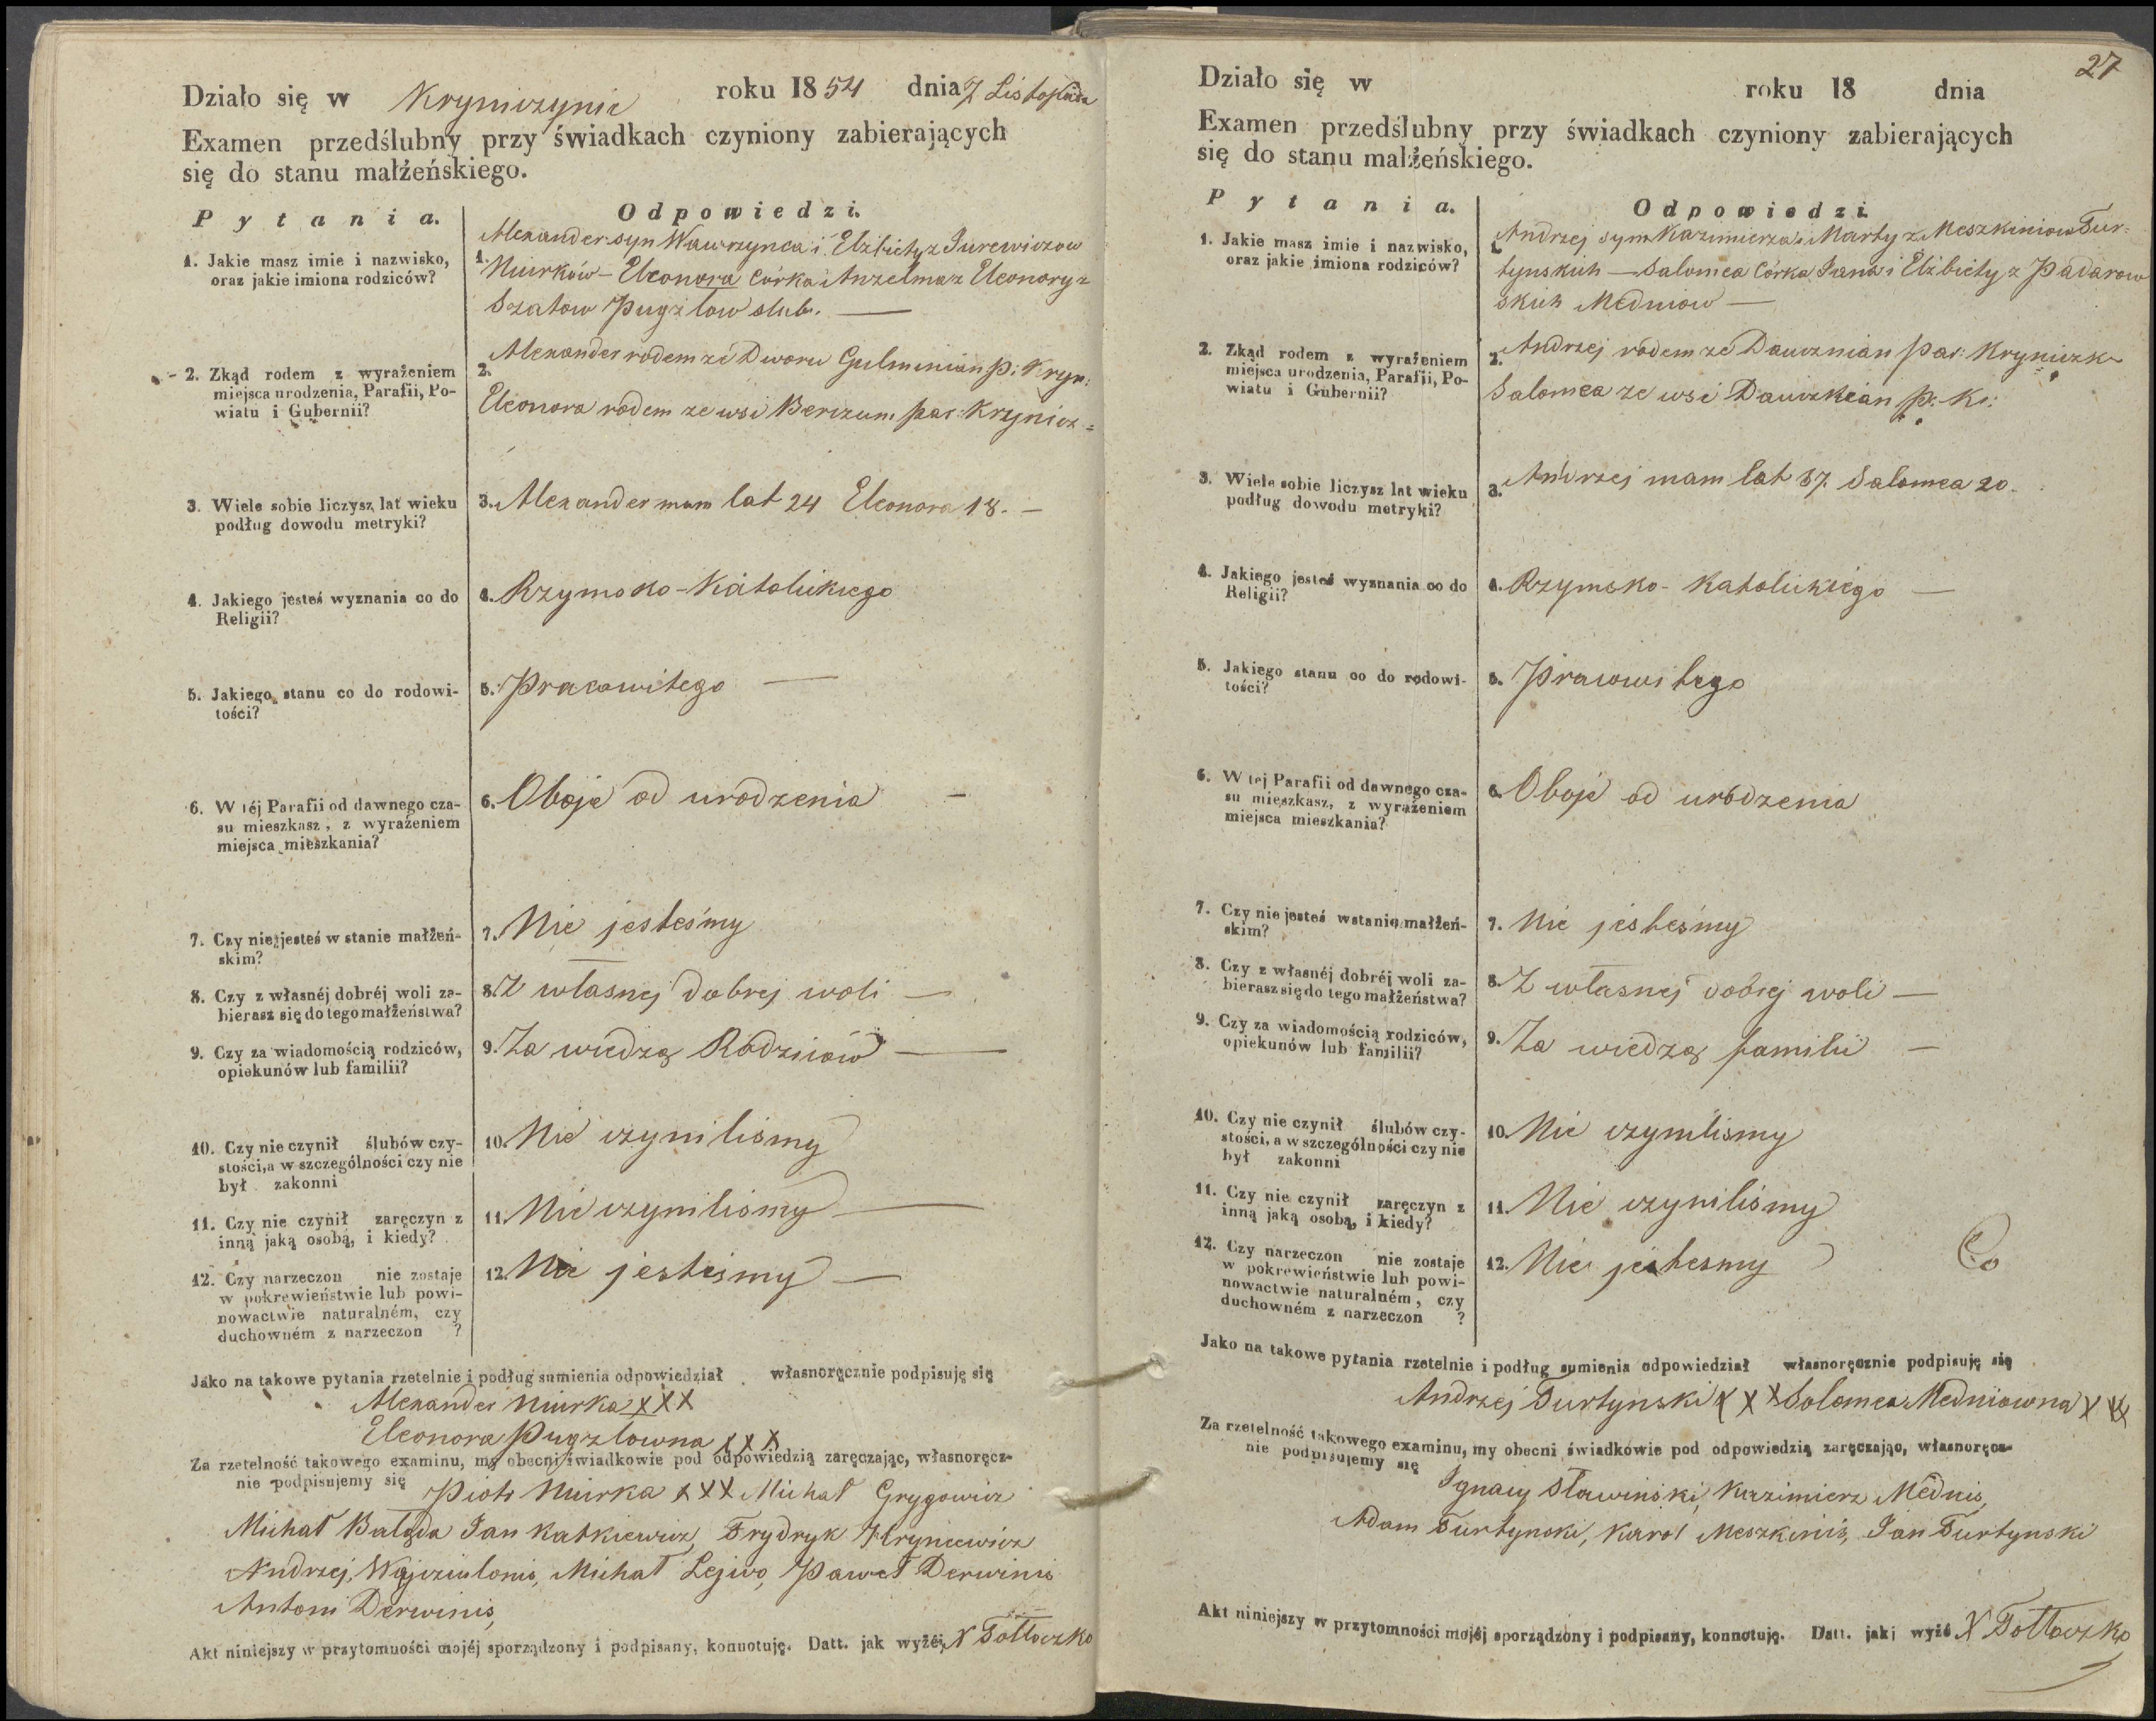 Działo się w Kryniczynie roku 1854 dnia 7 Listopada
Examen przedślubny przy świadkach czyniony zabierających
się do stanu małżeńskiego.
Pytania. Odpowiedzi.
1. Jakie masz imie i nazwisko,
oraz jakie imiona rodziców?
1. Alexander syn Wawrzynca i Elżbiety z Jurewiczow
Niurków - Eleonora Córka Anzelma z Eleonory z
Szatow Pugzlow slub. —
2. Zkąd rodem z wyrażeniem
miejsca urodzenia, Parafii, Po-
wiatu i Gubernii?
2. Alexander rodem ze Dworu Gulminian p: Kryn:
Eleonora rodem ze wsi Berczun. par: Krynicz=
3. Wiele sobie liczysz lat wieku
podług dowodu metryki?
3. Alexander mam lat 24 Eleonora 18. —
4. Jakiego jesteś wyznania co do
Religii?
4. Rzymsko-Katolickiego
5. Jakiego stanu co do rodowi-
tości?
5. Pracowitego —
6. W téj Parafii od dawnego cza-
su mieszkasz, z wyrażeniem
miejsca mieszkania?
6. Oboje od urodzenia —
7. Czy nie jesteś w stanie małżeń-
skim?
7. Nie jesteśmy
8. Czy z własnéj dobréj woli za-
bierasz się do tego małżeństwa?
8. Z własnej dobrej woli —
9. Czy za wiadomością rodziców,
opiekunów lub familii?
9. Za wiedzą Rodziców —
10. Czy nie czynił ślubów czy-
stości, a w szczególności czy nie
był zakonni
10. Nie czynilismy
11. Czy nie czynił zaręczyn z
inną jaką osobą, i kiedy?
11. Nie czynilismy —
12. Czy narzeczon nie zostaje
w pokrewieństwie lub powi-
nowactwie naturalném, czy
duchowném z narzeczon ?
12. Nie jestesmy —
Jako na takowe pytania rzetelnie i podług sumienia odpowiedział własnoręcznie podpisuję się
Alexander Niurka XXX
Eleonora Pugzlowna XXX
Za rzetelność takowego examinu, my obecni świadkowie pod odpowiedzią zaręczając, własnoręcz-
nie podpisujemy się Piotr Niurka XXX Michał Grygowicz
Michał Balada Jan Katkiewicz, Frydryk Hryncewicz
Andrzej Wajciulonis, Michał Lejwo, Paweł Derwinis
Antoni Derwinis,
Akt niniejszy w przytomności mojéj sporządzony i podpisany, konnotuję. Datt. jak wyżéj X Tołłoczko
27
Działo się w roku 18 dnia
Examen przedślubny przy świadkach czyniony zabierających
się do stanu małżeńskiego.
Pytania. Odpowiedzi.
1. Jakie masz imie i nazwisko,
oraz jakie imiona rodziców?
1. Andrzej syn Kazimierza i Marty z Meszkiniow Tur=
tynskich — Salomea Córka Jana i Elżbiety z Padarow
skich Medniow —
2. Zkąd rodem z wyrażeniem
miejsca urodzenia, Parafii, Po-
wiatu i Gubernii?
2. Andrzej rodem ze Daucznian par: Krynicz
Salomea ze wsi Dauczkian p: Kr:
3. Wiele sobie liczysz lat wieku
podług dowodu metryki?
3. Andrzej mam lat 37. Salomea 20.
4. Jakiego jesteś wyznania co do
Religii?
4. Rzymsko-Katolickiego —
5. Jakiego stanu co do rodowi-
tości?
5. Pracowitego
6. W tej Parafii od dawnego cza-
su mieszkasz, z wyrażeniem
miejsca mieszkania?
6. Oboje od urodzenia
7. Czy nie jesteś w stanie małżeń-
skim?
7. Nie jesteśmy
8. Czy z własnéj dobréj woli za-
bierasz się do tego małżeństwa?
8. Z własnej dobrej woli —
9. Czy za wiadomością rodziców,
opiekunów lub familii?
9. Za wiedzą familii —
10. Czy nie czynił ślubów czy-
stości, a w szczególności czy nie
był zakonni
10. Nie czynilismy
11. Czy nie czynił zaręczyn z
inną jaką osobą, i kiedy?
11. Nie czyniliśmy
12. Czy narzeczon nie zostaje
w pokrewieństwie lub powi-
nowactwie naturalném, czy
duchowném z narzeczon ?
12. Nie jestesmy
Jako na takowe pytania rzetelnie i podług sumienia odpowiedział własnoręcznie podpisuję się
Andrzej Turtynski XXX Salomea Medniowna XXX
Za rzetelność takowego examinu, my obecni świadkowie pod odpowiedzią zaręczając, własnoręcz-
nie podpisujemy się Ignacy Sławinski, Kazimierz Mednis,
Adam Turtynski, Karol Meszkinis, Jan Turtynski
Akt niniejszy w przytomności mojéj sporządzony i podpisany, konnotuję. Datt. jak wyżé X Tołłoczko